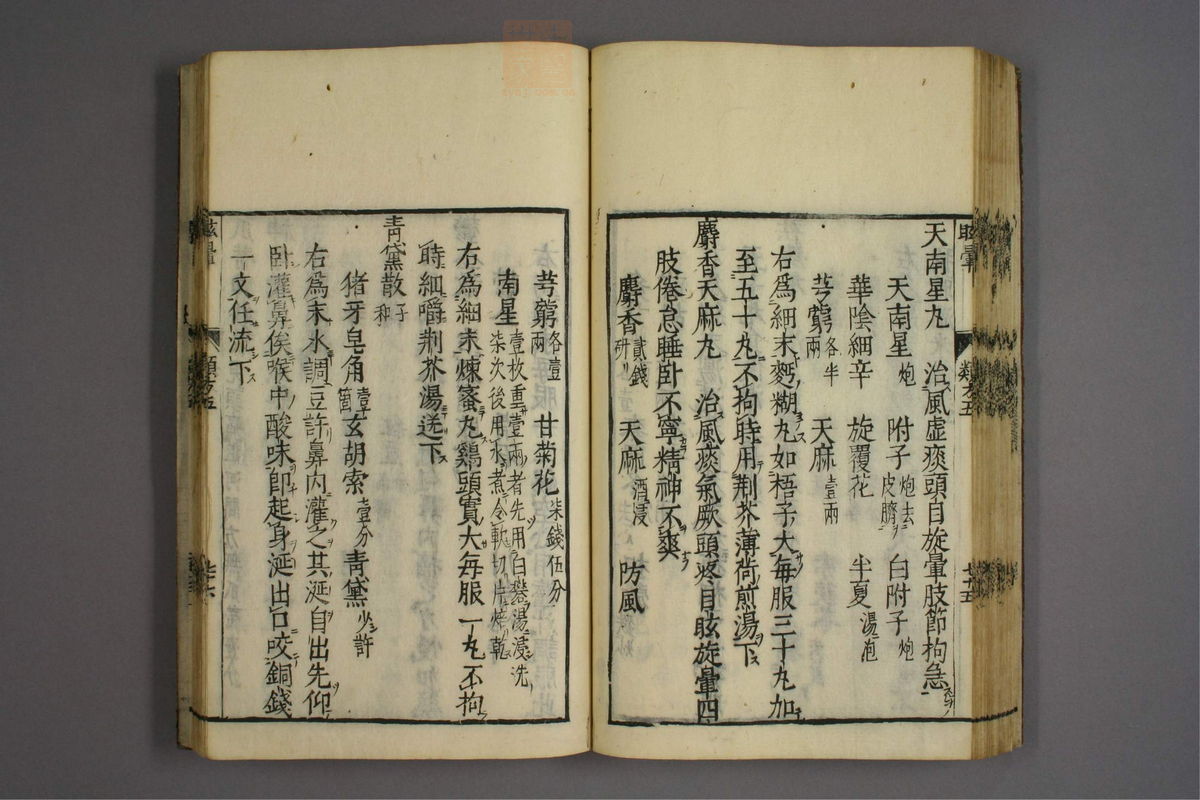 天南星丸 治風虚痰頭目旋暈肢節拘急
天南星炮 附子炮去皮臍 白附子炮
華陰細辛 旋覆花 半夏湯泡
芎藭各半兩 天麻壹兩
右爲細末麪糊丸如梧子大每服三十丸加
至五十丸不拘時用荆芥薄荷煎湯下
麝香天麻丸 治風痰氣厥頭疼目眩旋暈四
肢倦怠睡卧不寧精神不爽
麝香貳錢研 天麻酒浸 防風
眩暈 類方五 廿五
芎藭各壹兩 甘菊花柒錢伍分
南星壹枚重壹兩者先用白礬湯浸洗柒次後用水煮令軟切片焙乾
右爲細末煉蜜丸鷄頭實大每服一丸不拘
時細嚼荆芥湯送下
青黛散子和
猪牙皂角壹箇 玄胡索壹分 青黛少許
右爲末水調豆許鼻内灌之其涎自出先仰
卧灌鼻俟喉中酸味即起身涎出口咬銅錢
一文任流下
眩暈 類方五